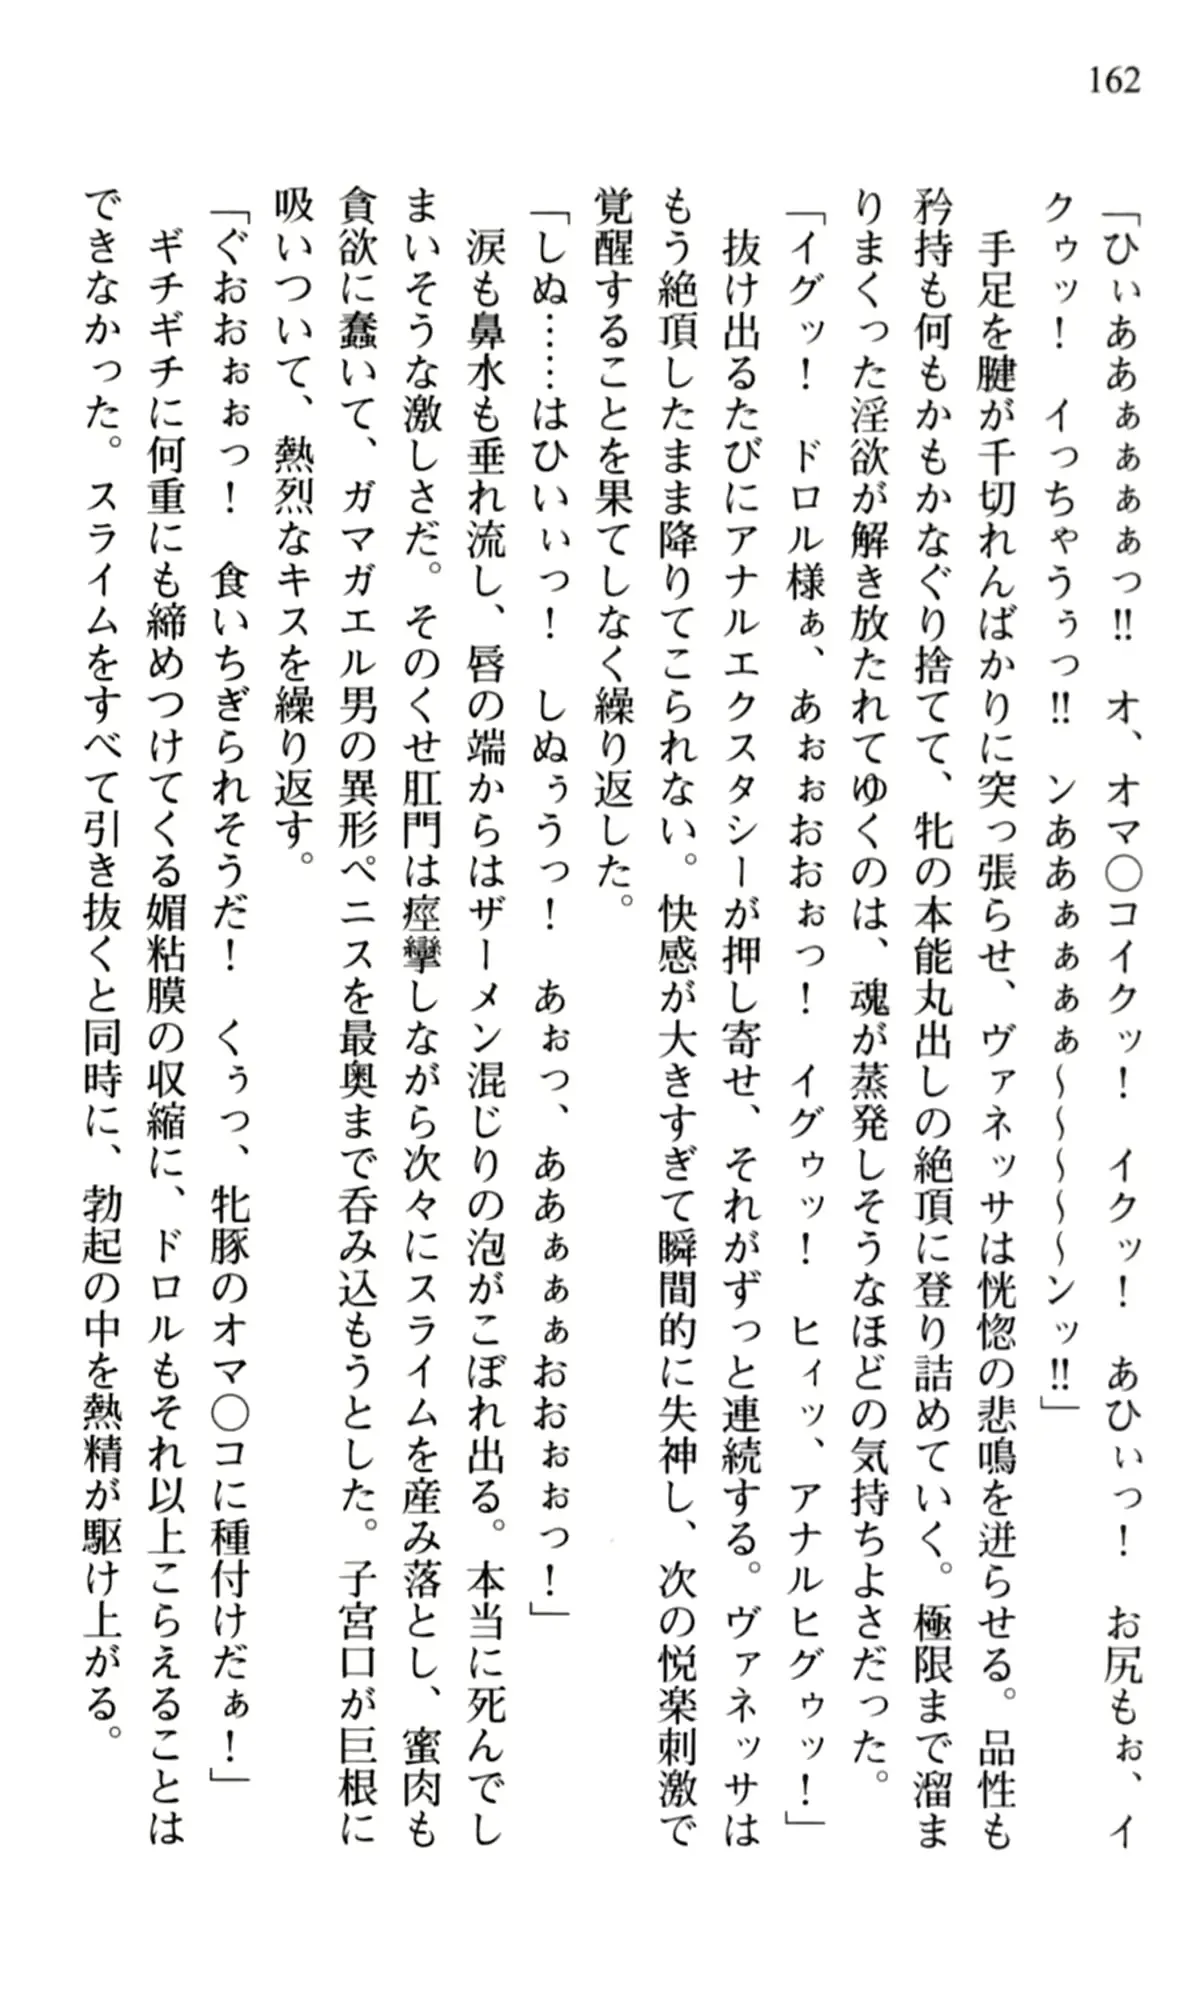 162
「ひぃああぁぁぁぁっ‼　オ、オマ〇コイクッ！　イクッ！　あひぃっ！　お尻もぉ、イ
クゥッ！　イっちゃうぅっ‼　ンああぁぁぁぁ～～～～～ンッ‼」
　手足を腱が千切れんばかりに突っ張らせ、ヴァネッサは恍惚の悲鳴を迸らせる。品性も
矜持も何もかもかなぐり捨てて、牝の本能丸出しの絶頂に登り詰めていく。極限まで溜ま
りまくった淫欲が解き放たれてゆくのは、魂が蒸発しそうなほどの気持ちよさだった。
「イグッ！　ドロル様ぁ、あぉぉおおぉっ！　イグゥッ！　ヒィッ、アナルヒグゥッ！」
　抜け出るたびにアナルエクスタシーが押し寄せ、それがずっと連続する。ヴァネッサは
もう絶頂したまま降りてこられない。快感が大きすぎて瞬間的に失神し、次の悦楽刺激で
覚醒することを果てしなく繰り返した。
「しぬ……はひいぃっ！　しぬぅうっ！　あぉっ、ああぁぁぁおおぉぉっ！」
　涙も鼻水も垂れ流し、唇の端からはザーメン混じりの泡がこぼれ出る。本当に死んでし
まいそうな激しさだ。そのくせ肛門は痙攣しながら次々にスライムを産み落とし、蜜肉も
貪欲に蠢いて、ガマガエル男の異形ペニスを最奥まで呑み込もうとした。子宮口が巨根に
吸いついて、熱烈なキスを繰り返す。
「ぐおおぉぉっ！　食いちぎられそうだ！　くぅっ、牝豚のオマ〇コに種付けだぁ！」
　ギチギチに何重にも締めつけてくる媚粘膜の収縮に、ドロルもそれ以上こらえることは
できなかった。スライムをすべて引き抜くと同時に、勃起の中を熱精が駆け上がる。